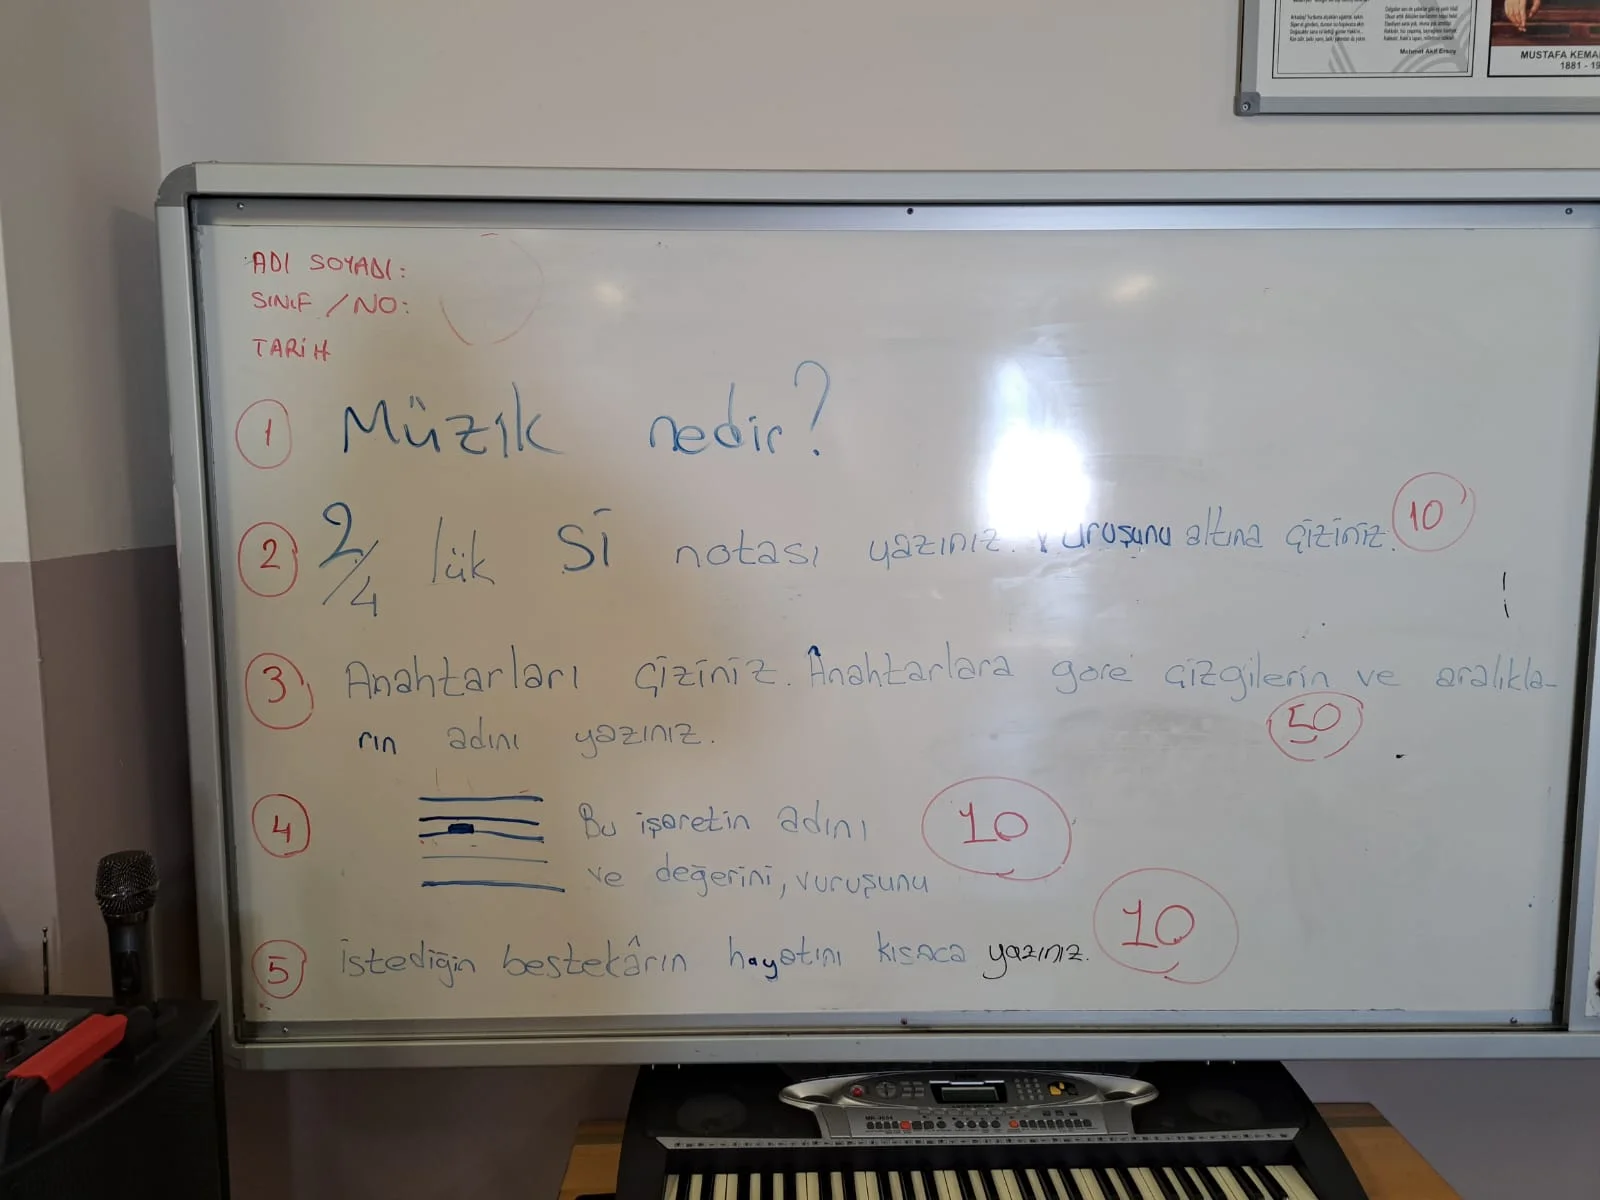 Arkadaş! Yurduma alçakları uğratma, sakın.
Mehmet Akif Ersoy
MUSTAFA KEMA
1881 - 19
ADI SOYADI:
SINIF / NO:
TARİH
1 Müzik nedir?
2 2/4 lük Sİ notası yazınız. Vuruşunu altına çiziniz. 10
3 Anahtarları çiziniz. Anahtarlara göre çizgilerin ve aralıkla-
rın adını yazınız. 50
4 Bu işaretin adını 10
ve değerini, vuruşunu
5 İstediğin bestekârın hayatını kısaca yazınız. 10